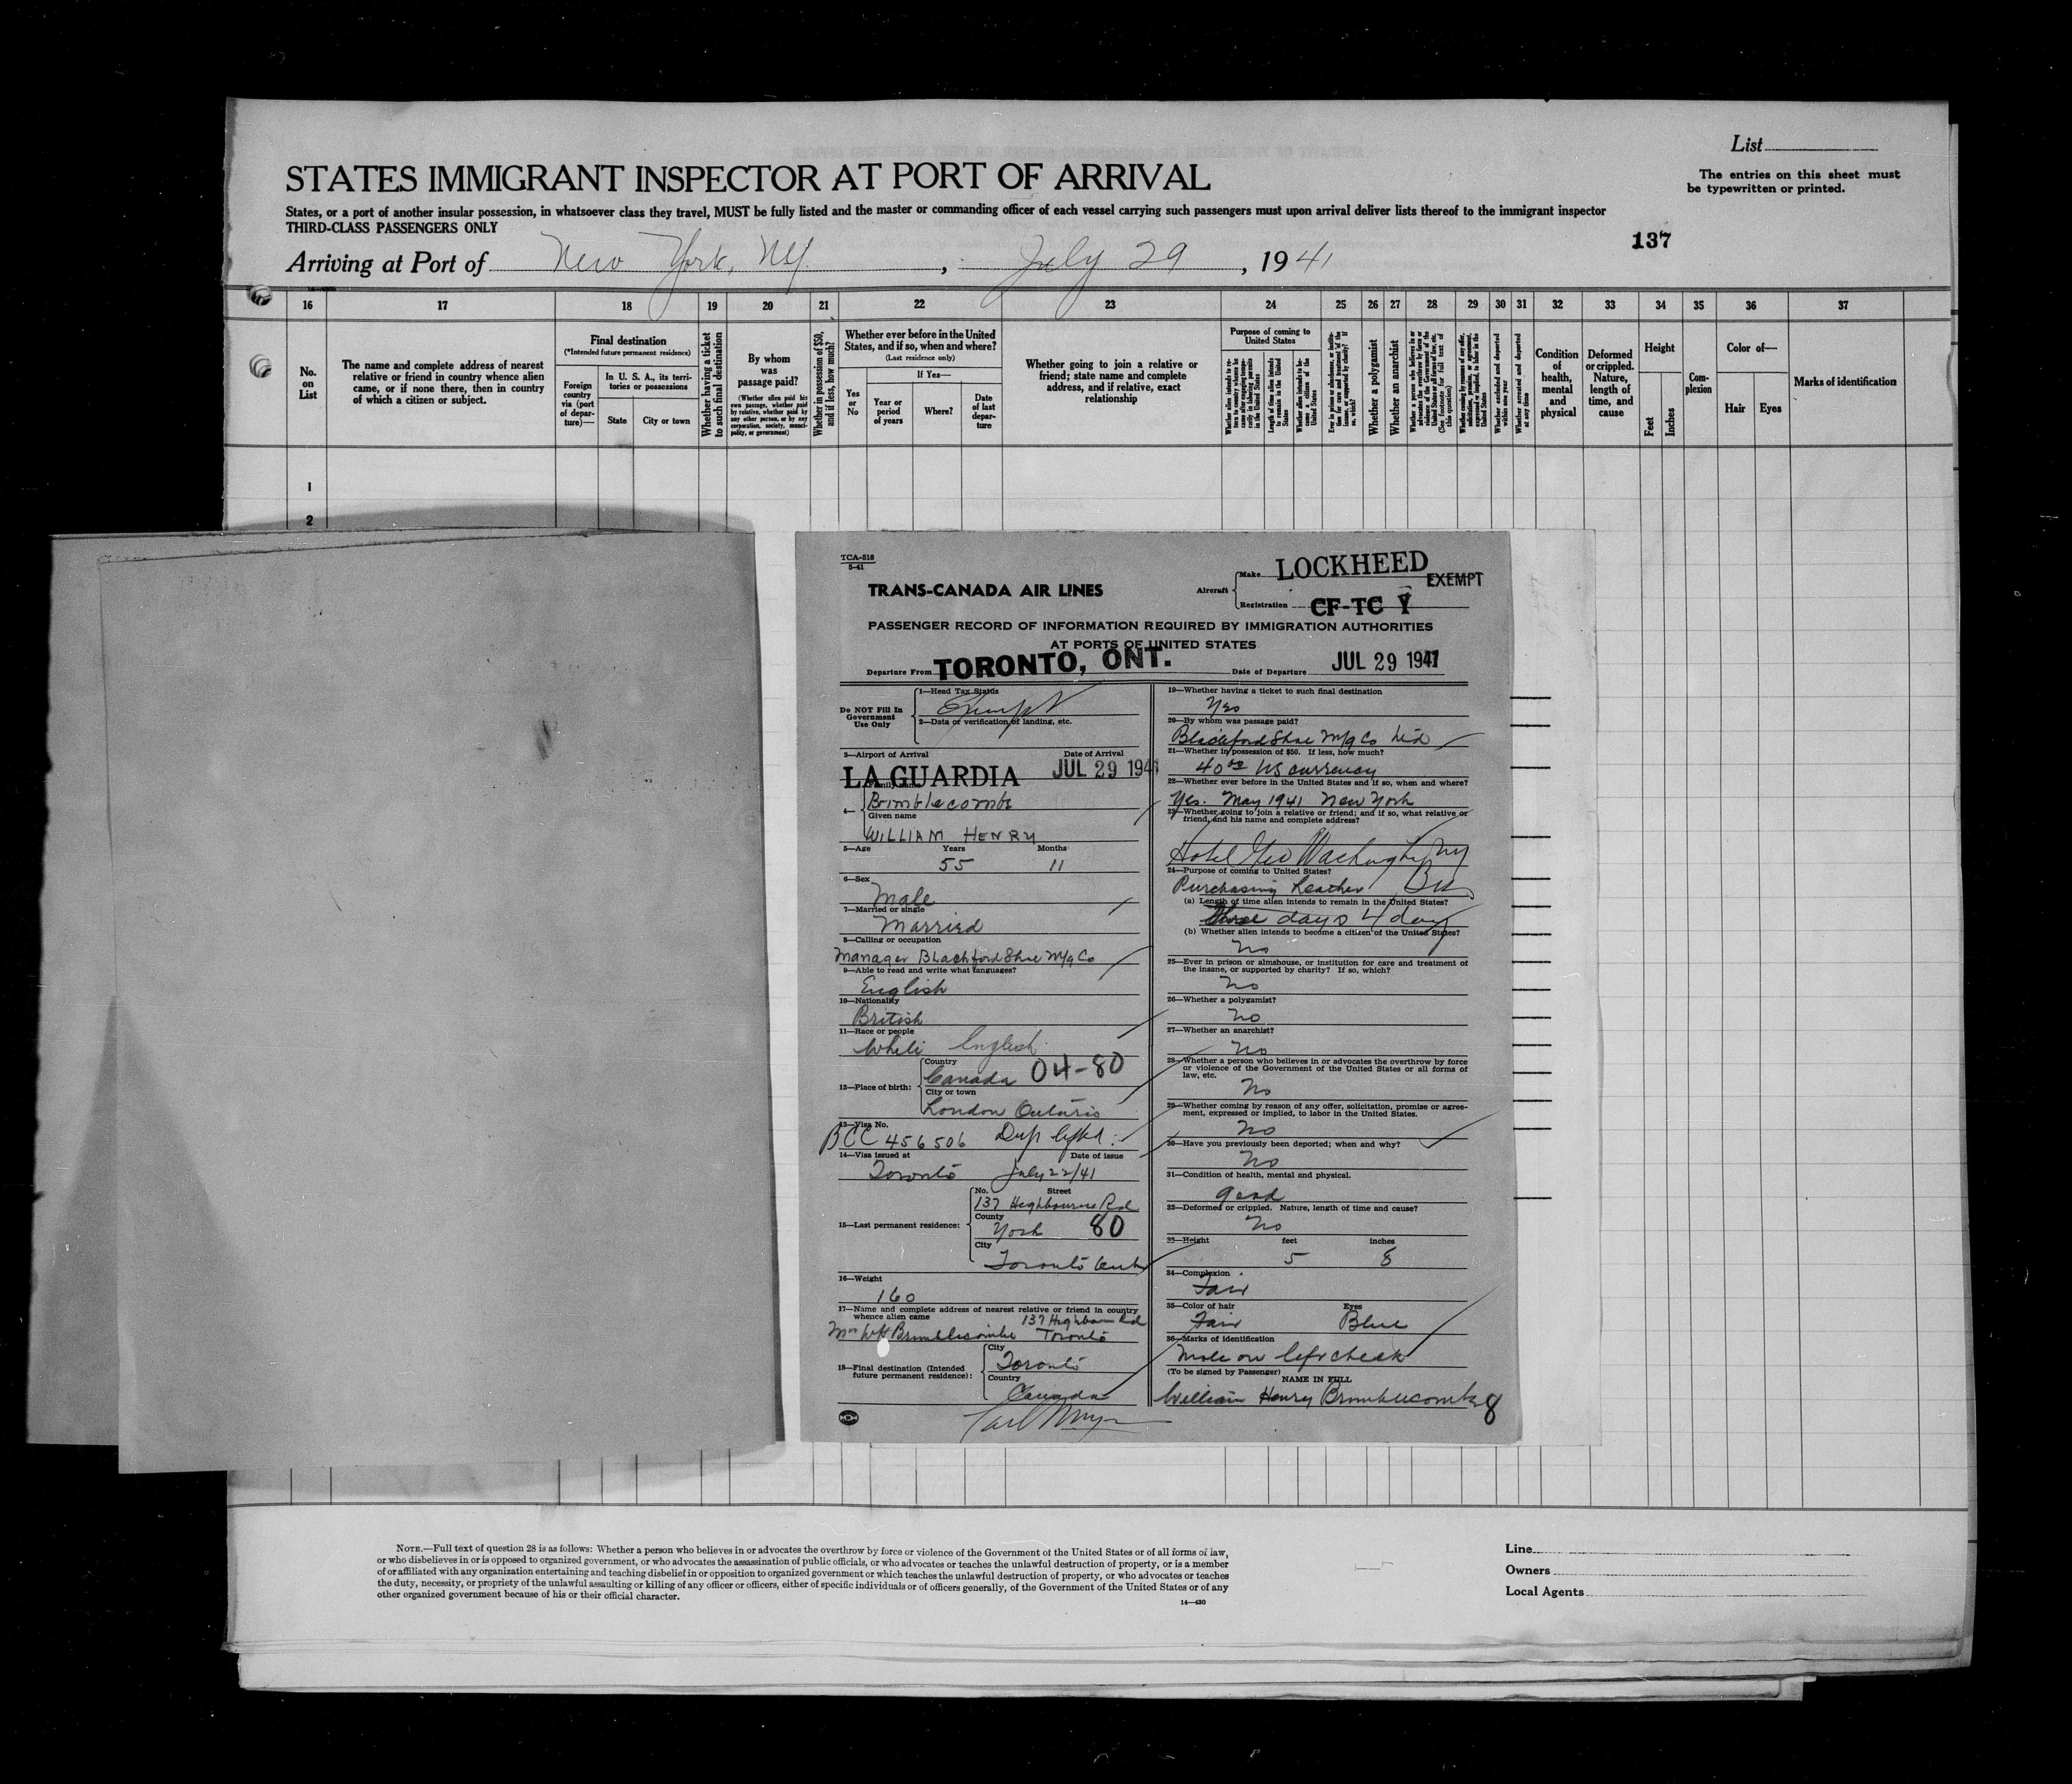 List
The entries on this sheet must
be typewritten or printed.
STATES IMMIGRANT INSPECTOR AT PORT OF ARRIVAL
States, or a port of another insular possession, in whatsoever class they travel, MUST be fully listed and the master or commanding officer of each vessel carrying such passengers must upon arrival deliver lists thereof to the immigrant inspector
THIRD-CLASS PASSENGERS ONLY
137
Arriving at Port of New York, NY. , July 29 , 1941
16 17 18 19 20 21 22 23 24 25 26 27 28 29 30 31 32 33 34 35 36 37
No. on List
The name and complete address of nearest
relative or friend in country whence alien
came, or if none there, then in country
of which a citizen or subject.
Final destination
(*Intended future permanent residence)
Foreign
country
via (port
of depar-
ture)—
In U. S. A., its terri-
tories or possessions
State
City or town
Whether having a ticket
to such final destination
By whom
was
passage paid?
(Whether alien paid his
own passage, whether paid
by relative, whether paid by
any other person, or by any
corporation, society, munici-
pality, or government)
Whether in possession of $50,
and if less, how much?
Whether ever before in the United
States, and if so, when and where?
(Last residence only)
Yes
or
No
If Yes—
Year or
period
of years
Where?
Date
of last
depar-
ture
Whether going to join a relative or
friend; state name and complete
address, and if relative, exact
relationship
Purpose of coming to
United States
Length of time alien intends
to remain in the United
States
Whether a polygamist
Whether an anarchist
Whether arrested and deported
at any time
Condition
of
health,
mental
and
physical
Deformed
or crippled.
Nature,
length of
time, and
cause
Height
Feet
Inches
Com-
plexion
Color of—
Hair
Eyes
Marks of identification
1
2
TCA-518
5-41
TRANS-CANADA AIR LINES
Aircraft
Make LOCKHEED
EXEMPT
Registration CF-TC Y
PASSENGER RECORD OF INFORMATION REQUIRED BY IMMIGRATION AUTHORITIES
AT PORTS OF UNITED STATES
Departure From TORONTO, ONT. Date of Departure JUL 29 1941
Do NOT Fill In
Government
Use Only
1—Head Tax Status
Exempt
2—Data or verification of landing, etc.
3—Airport of Arrival Date of Arrival
LA GUARDIA JUL 29 1941
4— Family name
Brimblecombe
Given name
WILLIAM HENRY
5—Age Years Months
55 11
6—Sex
Male
7—Married or single
Married
8—Calling or occupation
Manager Blachford Shoe Mfg Co
9—Able to read and write what languages?
English
10—Nationality
British
11—Race or people
White English
12—Place of birth:
Country
Canada 04-80
City or town
London Ontario
13—Visa No.
BCC 456506 Dup lifted
14—Visa issued at Date of issue
Toronto July 22/41
15—Last permanent residence:
No. Street
137 Highbourne Rd
County
York 80
City
Toronto Ont
16—Weight
160
17—Name and complete address of nearest relative or friend in country
whence alien came 137 Highbourn Rd
Mrs WH Brimblecombe Toronto
18—Final destination (Intended
future permanent residence):
City
Toronto
Country
Canada
19—Whether having a ticket to such final destination
Yes
20—By whom was passage paid?
Blachford Shoe Mfg Co Ltd
21—Whether in possession of $50. If less, how much?
40.00 US currency
22—Whether ever before in the United States and if so, when and where?
Yes. May 1941 New York
23—Whether going to join a relative or friend; and if so, what relative or
friend, and his name and complete address?
Hotel Geo Washington NY
24—Purpose of coming to United States?
Purchasing Leather Bus
(a) Length of time alien intends to remain in the United States?
three days 4 days
(b) Whether alien intends to become a citizen of the United States?
No
25—Ever in prison or almshouse, or institution for care and treatment of
the insane, or supported by charity? If so, which?
No
26—Whether a polygamist?
No
27—Whether an anarchist?
No
28—Whether a person who believes in or advocates the overthrow by force
or violence of the Government of the United States or all forms of
law, etc.
No
29—Whether coming by reason of any offer, solicitation, promise or agree-
ment, expressed or implied, to labor in the United States.
No
30—Have you previously been deported; when and why?
No
31—Condition of health, mental and physical.
good
32—Deformed or crippled. Nature, length of time and cause?
No
33—Height feet inches
5 8
34—Complexion
Fair
35—Color of hair Eyes
Fair Blue
36—Marks of identification
Mole on left cheek
(To be signed by Passenger)
NAME IN FULL
William Henry Brimblecombe 8
NOTE.—Full text of question 28 is as follows: Whether a person who believes in or advocates the overthrow by force or violence of the Government of the United States or of all forms of law,
or who disbelieves in or is opposed to organized government, or who advocates the assassination of public officials, or who advocates or teaches the unlawful destruction of property, or is a member
of or affiliated with any organization entertaining and teaching disbelief in or opposition to organized government or which teaches the unlawful destruction of property, or who advocates or teaches
the duty, necessity, or propriety of the unlawful assaulting or killing of any officer or officers, either of specific individuals or of officers generally, of the Government of the United States or of any
other organized government because of his or their official character.
14—430
Line
Owners
Local Agents